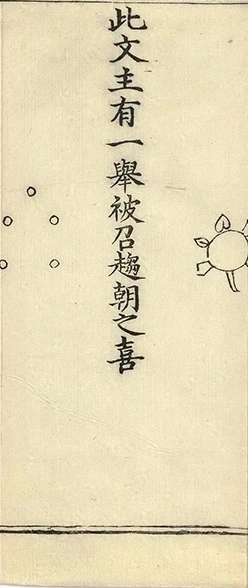 此文主有一舉被召趨朝之喜